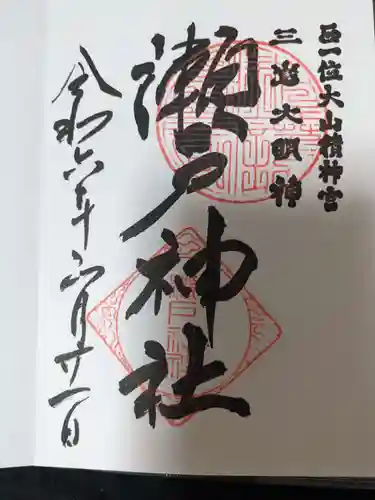 正一位大山積神宮
三島大明神
瀬戸神社
令和六年六月廿一日